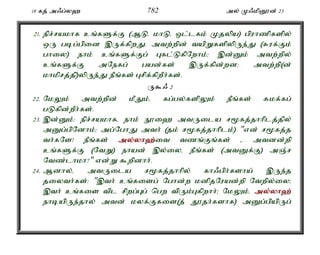 18 கத் அஃப்லஹ 782 அல் முஃமினூன் 23
21. நிச்சயமாக உங்களுக்கு (ஆடு, மாடு, ஒட்டகம் முதலிய) பிராணிகளில்
ஒரு படிப்பினை இருக்கிறது. அவற்றின் வயிறுகளிலிருந்து (சுரக்கும்
பாலை) நாம் உங்களுக்குப் புகட்டுகிறோம்; இன்னும் அவற்றில்
உங்களுக்கு அநேகப் பயன்கள் இருக்கின்றன; அவற்றி(ன்
மாமிசத்)திலிருந்து நீங்கள் புசிக்கிறீர்கள்.
ருகூஃ 2
22. மேலும் அவற்றின் மீதும், கப்பல்களிலும் நீங்கள் சுமக்கப்
படுகின்றீர்கள்.
23. இன்னும்: நிச்சயமாக, நாம் நூஹை அவருடைய சமூகத்தாரிடத்தில்
அனுப்பினோம்; அப்போது அவர் (தம் சமூகத்தாரிடம்) "என் சமூகத்த
வர்களே! நீங்கள் அல்லாஹ்வை வணங்குங்கள் - அவனன்றி
உங்களுக்கு (வேறு) நாயன் இல்லை, நீங்கள் (அவனுக்கு) அஞ்ச
வேண்டாமா?" என்று கூறினார்.
24. ஆனால், அவருடைய சமூகத்தாரில் காஃபிர்களாய் இருந்த
தலைவர்கள்: "இவர் உங்களைப் போன்ற மனிதரேயன்றி வேறில்லை;
இவர் உங்களை விட சிறப்புப் பெற விரும்புகிறார்; மேலும், அல்லாஹ்
நாடியிருந்தால் அவன் மலக்குகளை(த் தூதர்களாக) அனுப்பியிருப்